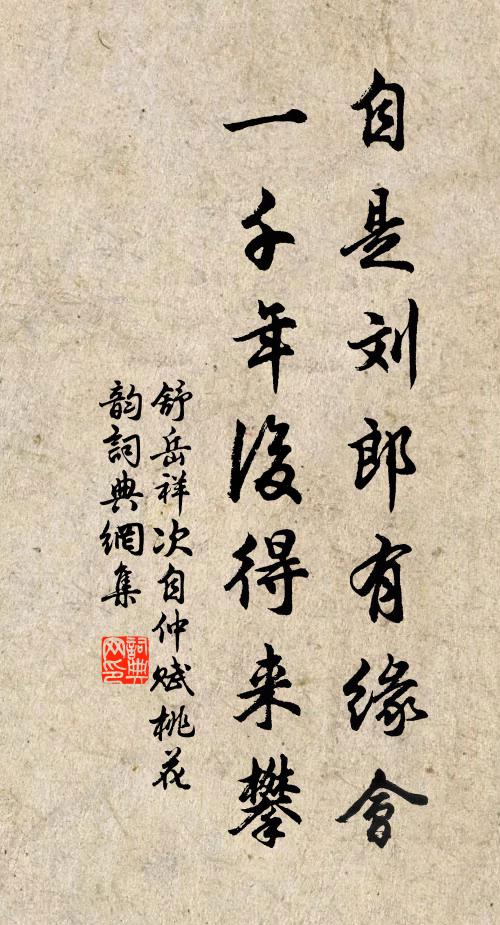 自是刘郎有缘會
一千年後得来攀
舒岳祥次自仲赋桃花
韵詞典網集
詞典网印